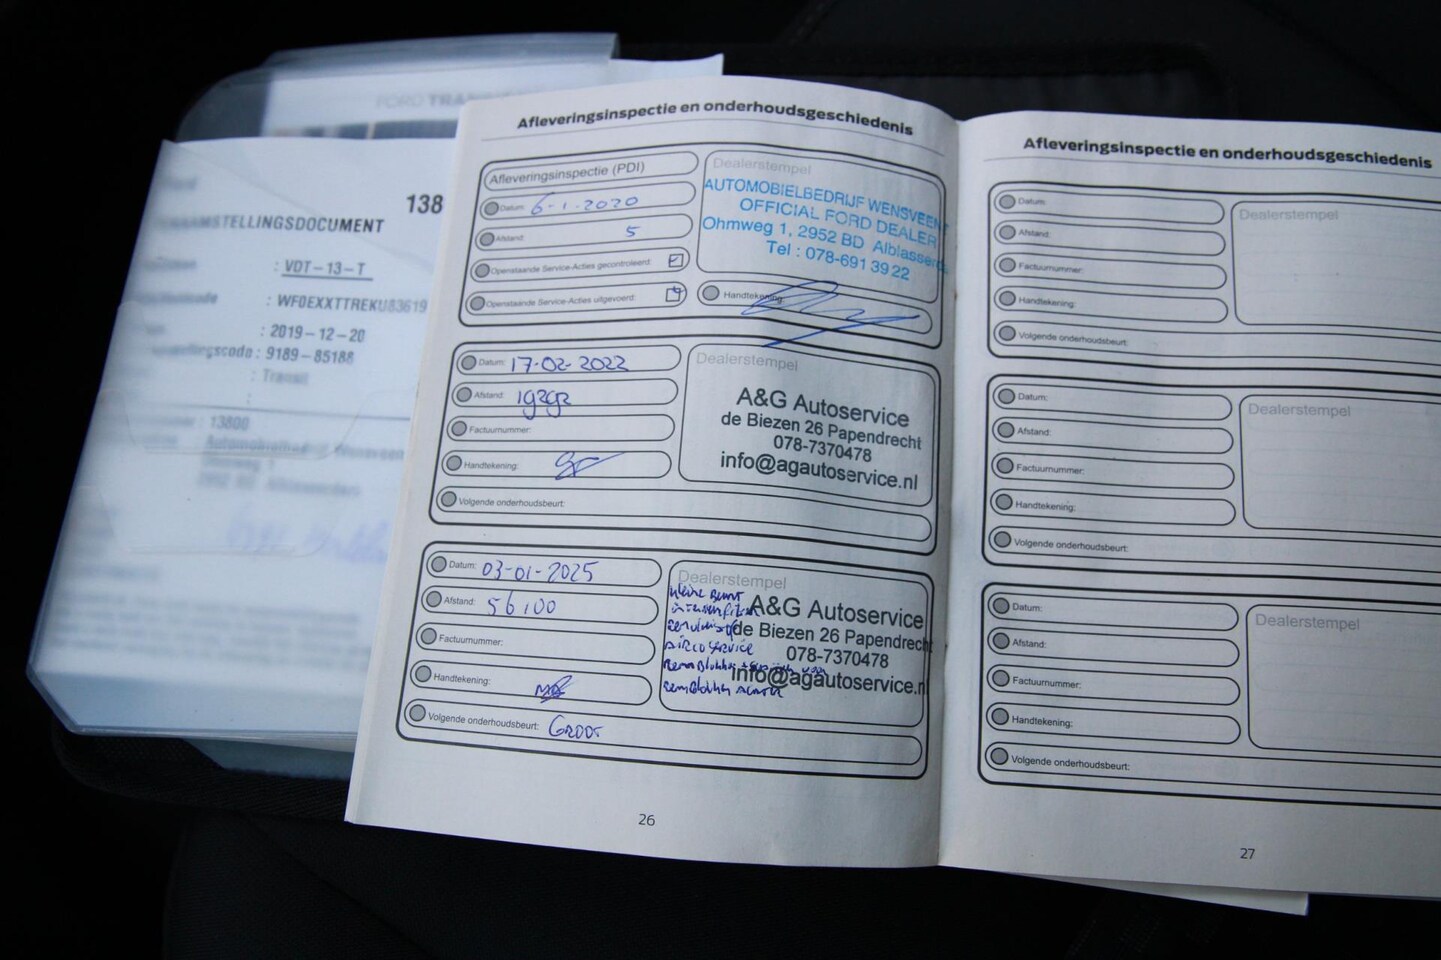 FORD TRANSIT
138
TENAAMSTELLINGSDOCUMENT
: VDT-13-T
: WF0EXXTTREKU83619
: 2019-12-20
: 9189-85188
: Transit
: 13800
Afleveringsinspectie en onderhoudsgeschiedenis
Afleveringsinspectie (PDI)
Datum: 6-1-2020
Afstand: 5
Openstaande Service-Acties gecontroleerd:
Openstaande Service-Acties uitgevoerd:
Dealerstempel
AUTOMOBIELBEDRIJF WENSVEEN
OFFICIAL FORD DEALER
Ohmweg 1, 2952 BD Alblasserd
Tel : 078-691 39 22
Handtekening:
Datum: 17-02-2022
Afstand:
Factuurnummer:
Handtekening:
Volgende onderhoudsbeurt:
Dealerstempel
A&G Autoservice
de Biezen 26 Papendrecht
078-7370478
info@agautoservice.nl
Datum: 03-01-2025
Afstand: 56100
Factuurnummer:
Handtekening:
Volgende onderhoudsbeurt: Groot
Dealerstempel
kleine Beurt
A&G Autoservice
de Biezen 26 Papendrecht
Airco Service
078-7370478
info@agautoservice.nl
26
Afleveringsinspectie en onderhoudsgeschiedenis
Datum:
Afstand:
Factuurnummer:
Handtekening:
Volgende onderhoudsbeurt:
Dealerstempel
Datum:
Afstand:
Factuurnummer:
Handtekening:
Volgende onderhoudsbeurt:
Dealerstempel
Datum:
Afstand:
Factuurnummer:
Handtekening:
Volgende onderhoudsbeurt:
Dealerstempel
27